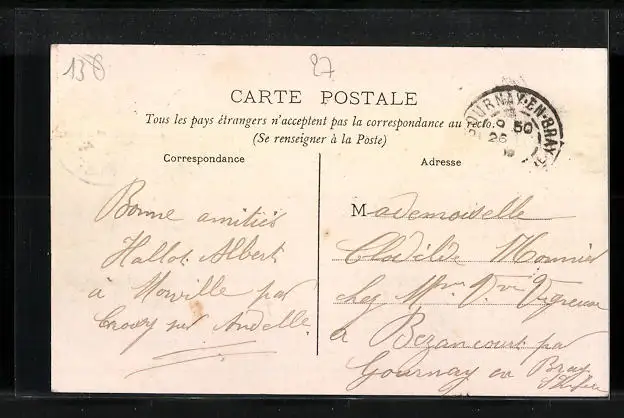 138
27
CARTE POSTALE
Tous les pays étrangers n'acceptent pas la correspondance au recto.
(Se renseigner à la Poste)
Correspondance
Adresse
GOURNAY-EN-BRAY
9 50
26
Bonne amitiés
Hallot Albert
à Morville par
Croisy sur Andelle
Mademoiselle
Clotilde Monnier
chez Mme Vve Vigreux
à Bezancourt par
Gournay en Bray